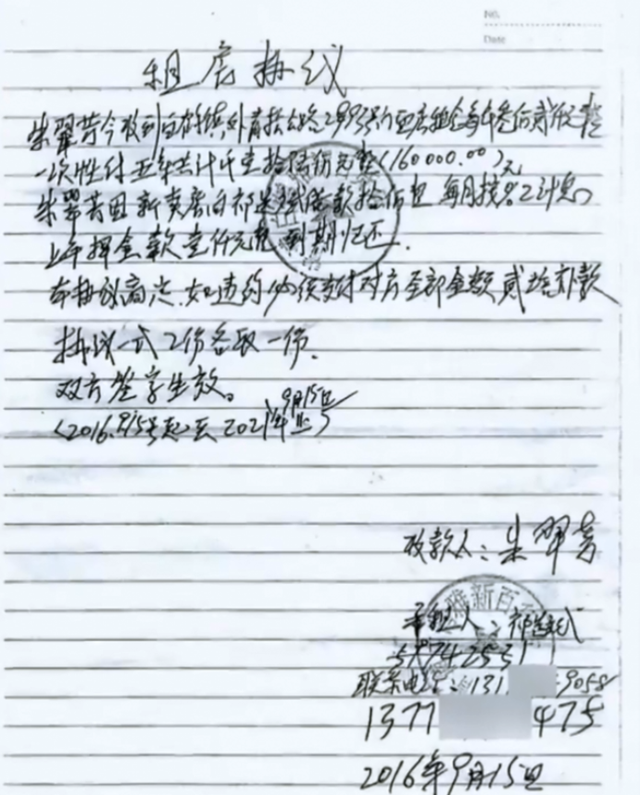 No.
Date
租店协议
朱翠芳今收到白鹤镇外青松公路2993号门面房租金每年叁仟贰佰元整
一次性付五年共计千壹拾陆万元整(160000.00)元
朱翠芳因新卖房向祁 借款拾 每月按%2计息
上年押金款壹仟元 到期归还.
本协议 如违约必须支付对方全部金额贰倍 款
协议一式2份各取一份.
双方签字生效。
(2016.9/15号起至2021年9月15日止)
收款人:朱翠芳
雅新百
承租人:祁
59742531
联系电话:131 9058
1377 475
2016年9月15日